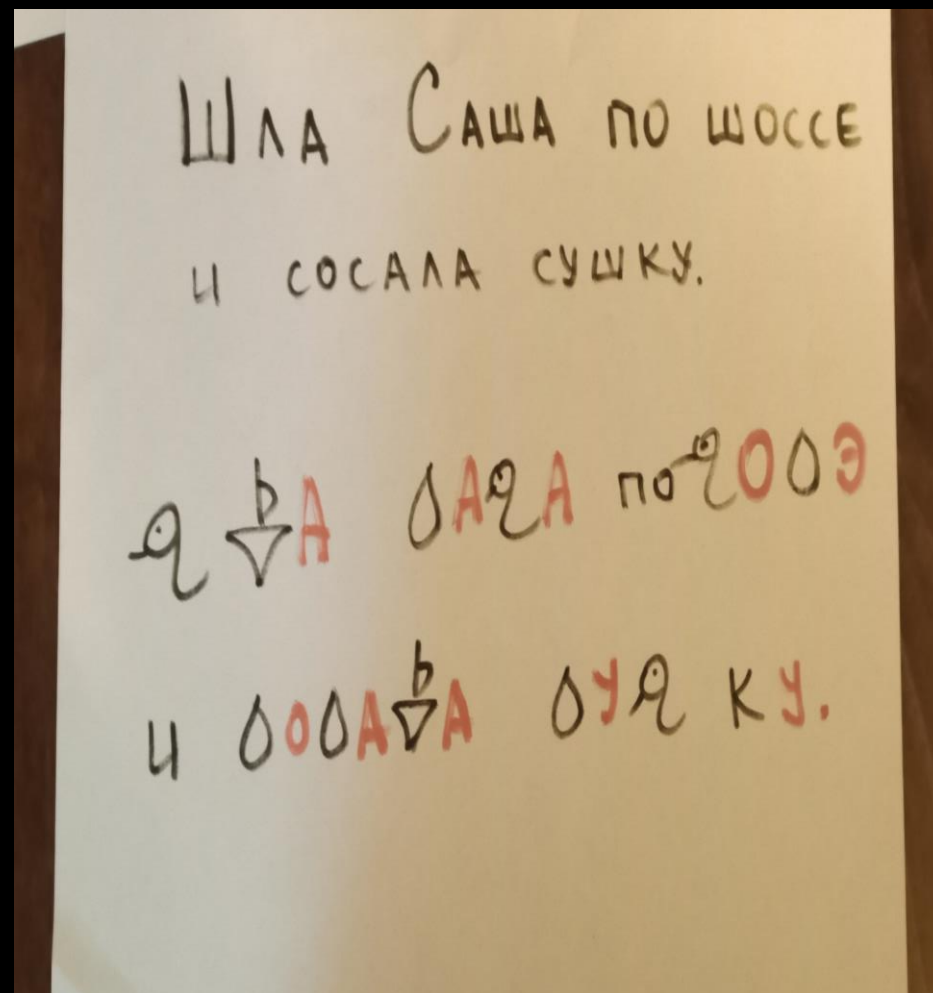 Шла Саша по шоссе
и сосала сушку.
А А А по О Э
и о А А У к У.